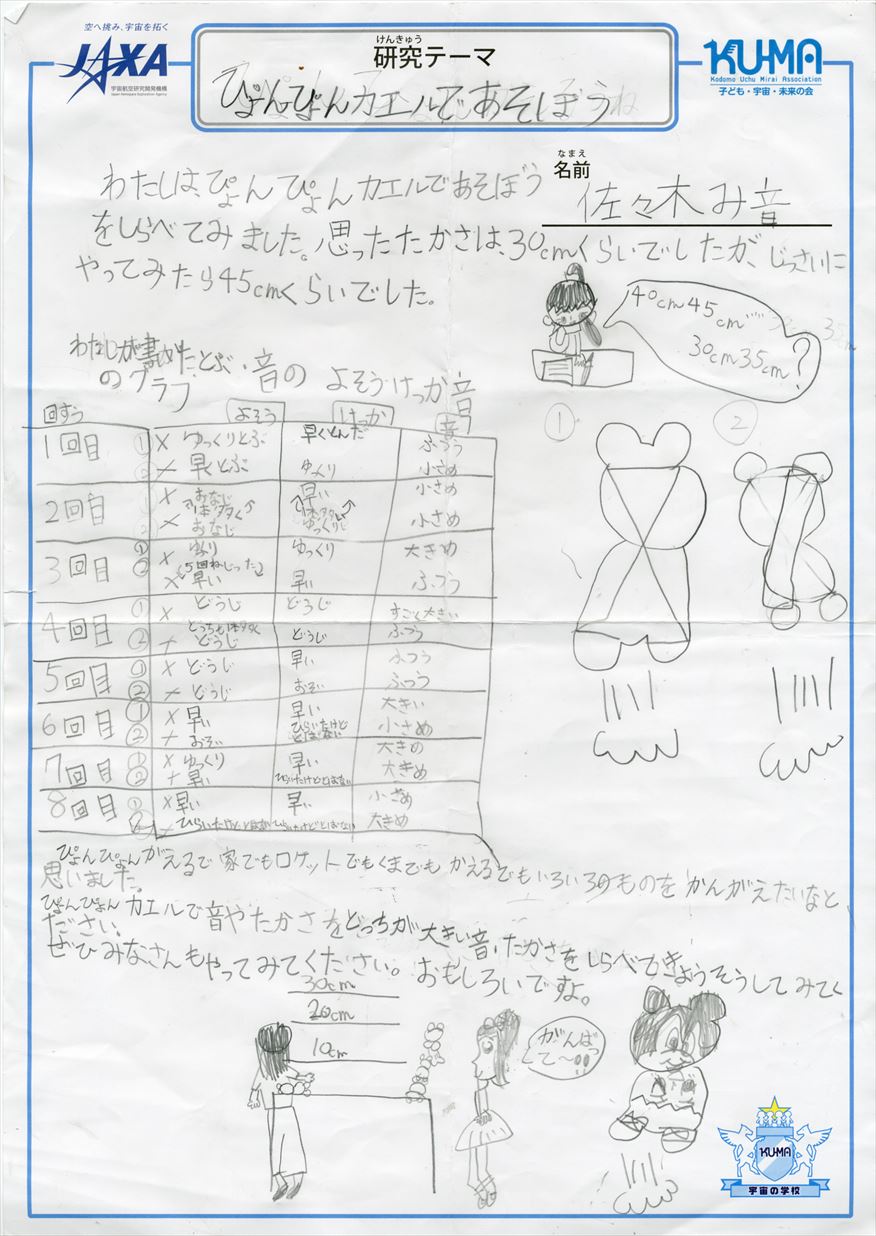 空へ挑み、宇宙を拓く
JAXA
宇宙航空研究開発機構
Japan Aerospace Exploration Agency
けんきゅう
研究テーマ
ぴょんぴょんカエルであそぼう
KU-MA
Kodomo Uchu Mirai Association
子ども・宇宙・未来の会
なまえ
名前
佐々木み音
わたしは、ぴょんぴょんカエルであそぼう
をしらべてみました。思ったたかさは、30cmくらいでしたが、じっさいに
やってみたら45cmくらいでした。
40cm45cm
30cm35cm?
わたしが書いたとぶ・音の よそうけっか音
のグラフ
回すう よそう けっか 音
1回目 ① × ゆっくりとぶ 早くとんだ ふつう
② 早くとぶ ゆっくり 小さめ
2回目 × おなじ 早い 小さめ
おなじ ゆっくり 小さめ
3回目 ① × ゆっくり ゆっくり 大きめ
② (5回ねじった)
× 早い 早い ふつう
4回目 ① × どうじ どうじ すごく大きい
② どうじ どうじ ふつう
5回目 ① × どうじ 早い ふつう
② どうじ おそい ふつう
6回目 ① × 早い 早い 大きい
② おそい ひらいたけどとばない 小さめ
7回目 ① × ゆっくり 早い 大きめ
② 早い ひらいたけどとばない 大きめ
8回目 ① ×早い 早い 小さめ
② ひらいたけどとばない ひらいたけどとばない 大きめ
① ②
ぴょんぴょんがえるで家でもロケットでもくまでもかえるでもいろいろのものをかんがえたいなと
思いました。
ぴょんぴょんカエルで音やたかさをどっちが大きい音、たかさをしらべてきょうそうしてみてく
ださい。
ぜひみなさんもやってみてください。おもしろいですよ。
30cm
20cm
10cm
がんばって〜!!
KU-MA
宇宙の学校